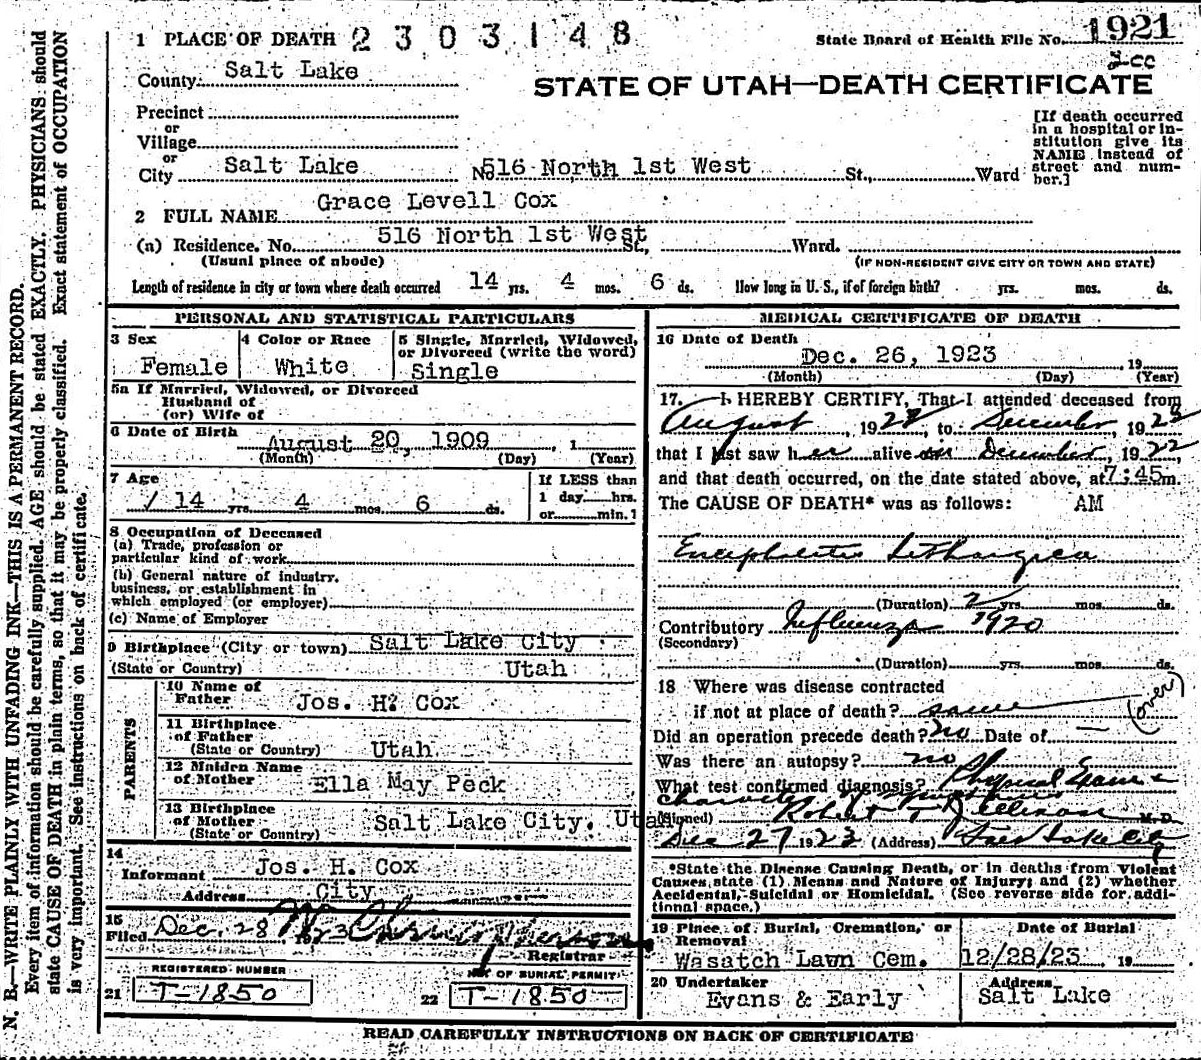 1 PLACE OF DEATH 2303148
State Board of Health File No. 1921
200
County Salt Lake
STATE OF UTAH—DEATH CERTIFICATE
Precinct
or
Village
or
City Salt Lake No 516 North 1st West St., Ward
[If death occurred
in a hospital or in-
stitution give its
NAME instead of
street and num-
ber.]
2 FULL NAME Grace Levell Cox
(a) Residence. No. 516 North 1st West St., Ward.
(Usual place of abode) (IF NON-RESIDENT GIVE CITY OR TOWN AND STATE)
Length of residence in city or town where death occurred 14 yrs. 4 mos. 6 ds. How long in U. S., if of foreign birth? yrs. mos. ds.
PERSONAL AND STATISTICAL PARTICULARS
3 Sex
Female
4 Color or Race
White
5 Single, Married, Widowed,
or Divorced (write the word)
Single
5a If Married, Widowed, or Divorced
Husband of
(or) Wife of
6 Date of Birth August 20, 1909 , 1
(Month) (Day) (Year)
7 Age
14 yrs. 4 mos. 6 ds.
If LESS than
1 day hrs.
or min.?
8 Occupation of Deceased
(a) Trade, profession or
particular kind of work
(b) General nature of industry,
business, or establishment in
which employed (or employer)
(c) Name of Employer
9 Birthplace (City or town) Salt Lake City
(State or Country) Utah
PARENTS
10 Name of
Father Jos. H. Cox
11 Birthplace
of Father
(State or Country) Utah
12 Maiden Name
of Mother Ella May Peck
13 Birthplace
of Mother
(State or Country) Salt Lake City, Utah
14
Informant Jos. H. Cox
Address City
15
Filed Dec. 28 1923
Registrar
REGISTERED NUMBER
21 T-1850
NO. OF BURIAL PERMIT
22 T-1850
MEDICAL CERTIFICATE OF DEATH
16 Date of Death
Dec. 26, 1923 , 19
(Month) (Day) (Year)
17. I HEREBY CERTIFY, That I attended deceased from
August , 1922, to December , 1923
that I last saw her alive on December, 1922
and that death occurred, on the date stated above, at 7:45 m.
The CAUSE OF DEATH* was as follows: AM
Encephalitis Lethargica
(Duration) 2 yrs. mos. ds.
Contributory Influenza 1920
(Secondary)
(Duration) yrs. mos. ds.
18 Where was disease contracted
if not at place of death? same (over)
Did an operation precede death? no Date of —
Was there an autopsy? no
What test confirmed diagnosis? Physical Exam
(Signed) Robert T. M.D.
Dec 27 1923 (Address) Salt Lake City
*State the Disease Causing Death, or in deaths from Violent
Causes, state (1) Means and Nature of Injury; and (2) whether
Accidental, Suicidal or Homicidal. (See reverse side for addi-
tional space.)
19 Place of Burial, Cremation, or
Removal
Wasatch Lawn Cem.
Date of Burial
12/28/23 , 19
20 Undertaker
Evans & Early
Address
Salt Lake
READ CAREFULLY INSTRUCTIONS ON BACK OF CERTIFICATE
N. B.—WRITE PLAINLY WITH UNFADING INK—THIS IS A PERMANENT RECORD.
Every item of information should be carefully supplied. AGE should be stated EXACTLY. PHYSICIANS should
state CAUSE OF DEATH in plain terms, so that it may be properly classified. Exact statement of OCCUPATION
is very important. See instructions on back of certificate.